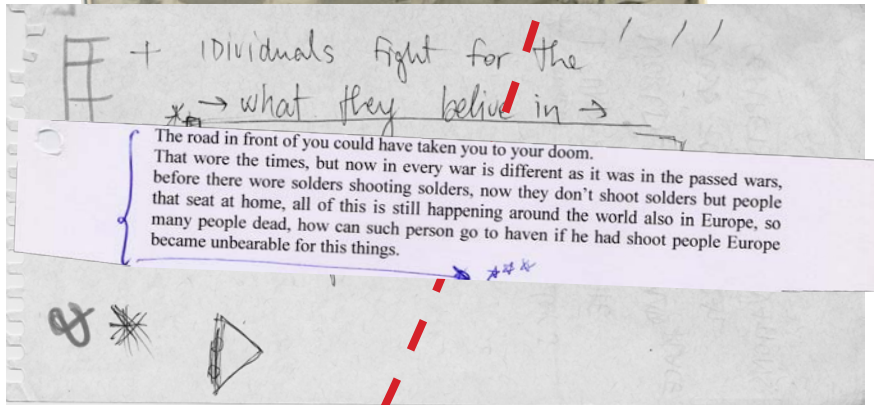 + iDividuals fight for the
→ what they belive in →
The road in front of you could have taken you to your doom.
That wore the times, but now in every war is different as it was in the passed wars,
before there wore solders shooting solders, now they don't shoot solders but people
that seat at home, all of this is still happening around the world also in Europe, so
many people dead, how can such person go to haven if he had shoot people Europe
became unbearable for this things.